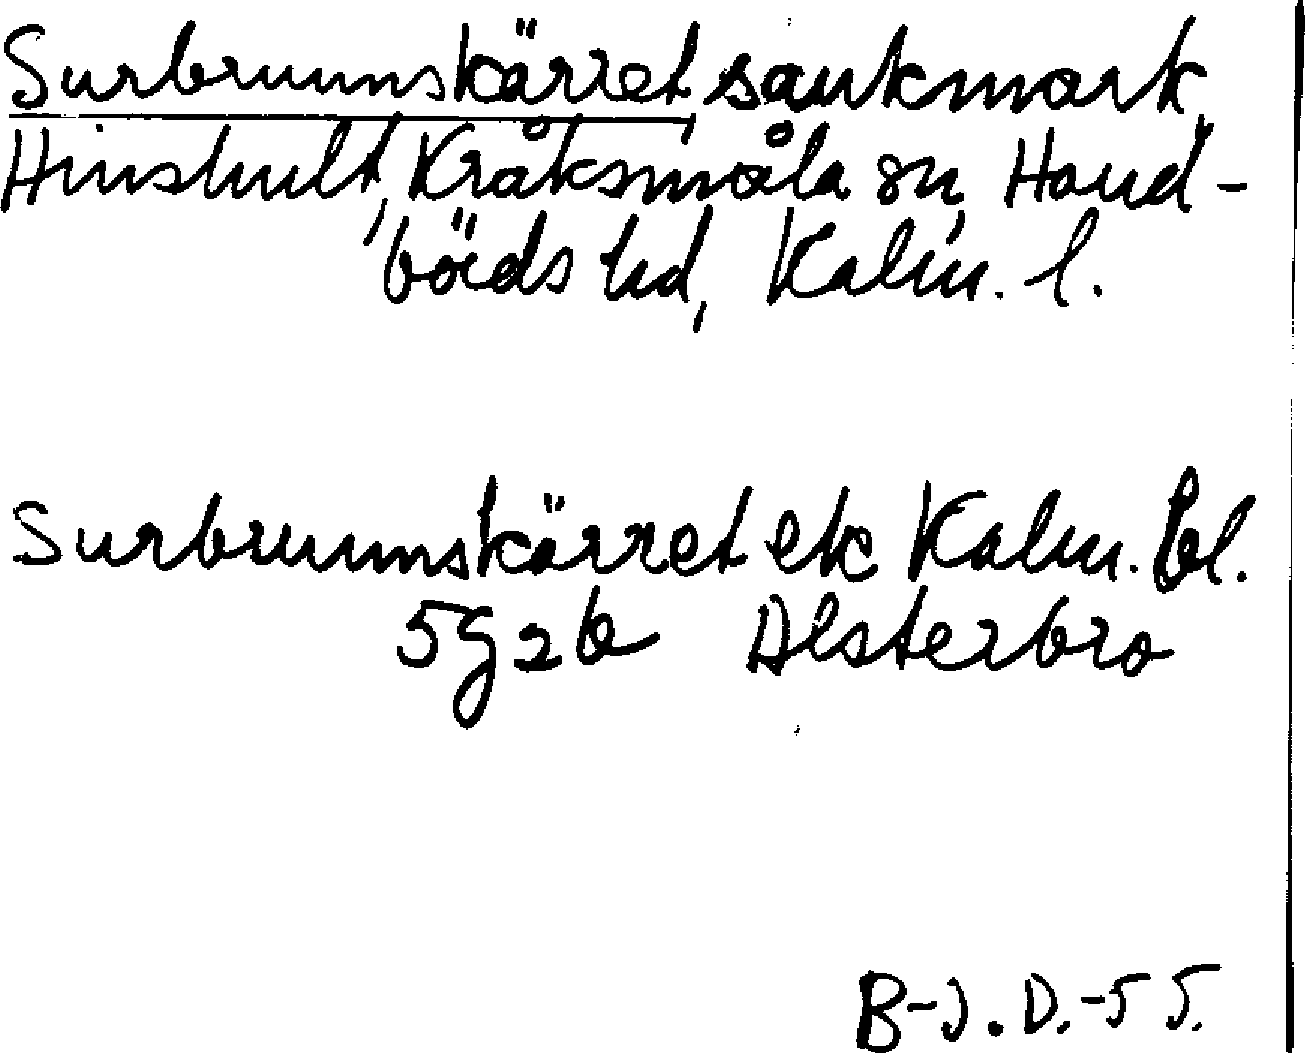 Surbrunnskärret, sankmark,
Hinshult, Kråksmåla sn, Hand-
börds hd, Kalm. l.
Surbrunnskärret ek Kalm. bl.
5g2b Alsterbro
B-J.D.-55.